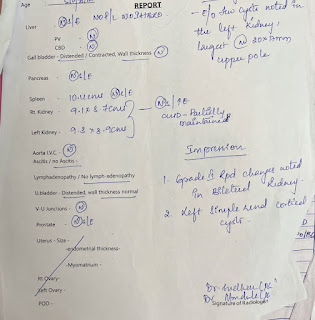 Age
REPORT
Liver (N) S/E NO F/L
PV - (N)
CBD - (N)
Gall bladder - Distended / Contracted, Wall thickness (N)
Pancreas - (N) S/E
Spleen - 10.4cms (N) S/E
Rt. Kidney - 9.1x3.7cms
Left Kidney - 9.3x3.9cms
(N) S/↑E
CMD - Partially
maintained
Aorta I.V.C. - (N)
Ascitis / no Ascitis -
Lymphadenopathy / No lymph-adenopathy
U.bladder - Distended, wall thickness normal
V-U Junctions - (N)
Prostate - (N) S/E
Uterus - Size -
-endometrial thickness-
-Myometrium -
Rt Ovary -
Left Ovary -
POD -
- E/o few cysts noted in
the left kidney,
largest 20x17mm
upper pole
Impression
1. Grade II Rpd changes noted
in Bilateral kidney.
2. Left simple renal cortical
cysts.
Dr.
Dr.
Signature of Radiologist